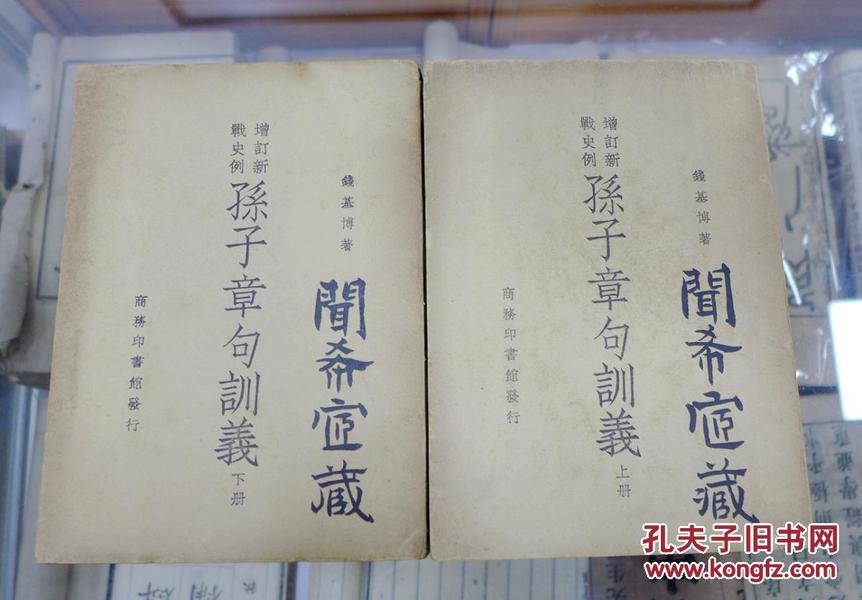 錢基博著
聞希藏
增訂新
戰史例
孫子章句訓義
上册
商務印書館發行
錢基博著
聞希藏
增訂新
戰史例
孫子章句訓義
下册
商務印書館發行
孔夫子旧书网
www.kongfz.com